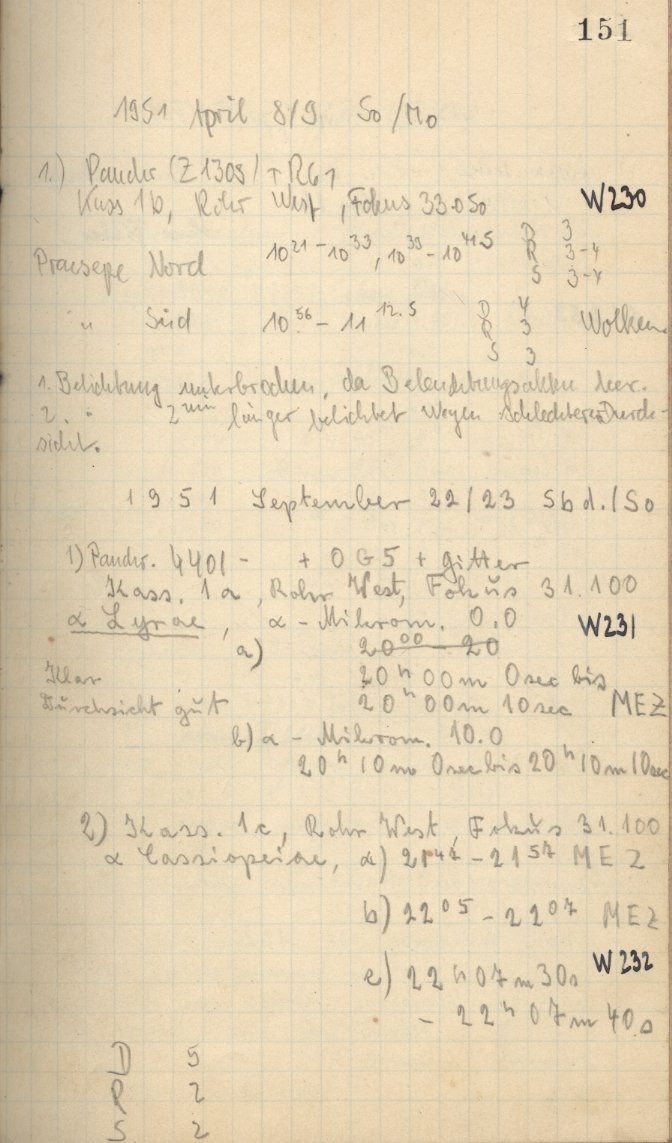 151
1951 April 8/9 So/Mo
1.) Panchr (Z1308) + RG1
Kass 1b, Rohr West, Fokus 33.050 W230
Praesepe Nord 10²¹ - 10³³, 10³⁹ - 10⁴¹·⁵ D 3
R 3-4
S 3-4
" Süd 10⁵⁶ - 11¹²·⁵ D 4
R 3 Wolken
S 3
1. Belichtung unterbrochen, da Beleuchtungsakku leer.
2. " 2ᵐⁱⁿ länger belichtet wegen schlechterer Durch-
sicht.
1951 September 22/23 Sbd./So
1) Panchr. 4401 - + OG5 + Gitter
Kass. 1a, Rohr West, Fokus 31.100
α Lyrae, α - Mikrom. 0.0 W231
a) 20⁰⁰ - 20
Klar 20ʰ00m 0sec bis
Durchsicht gut 20ʰ00m 10sec MEZ
b) α - Mikrom. 10.0
20ʰ10m 0sec bis 20ʰ10m10sec
2) Kass. 1c, Rohr West, Fokus 31.100
α Cassiopeiae, a) 21⁴⁷ - 21⁵⁷ MEZ
b) 22⁰⁵ - 22⁰⁷ MEZ
W232
c) 22ʰ07m30s
- 22ʰ07m40s
D 5
R 2
S 2